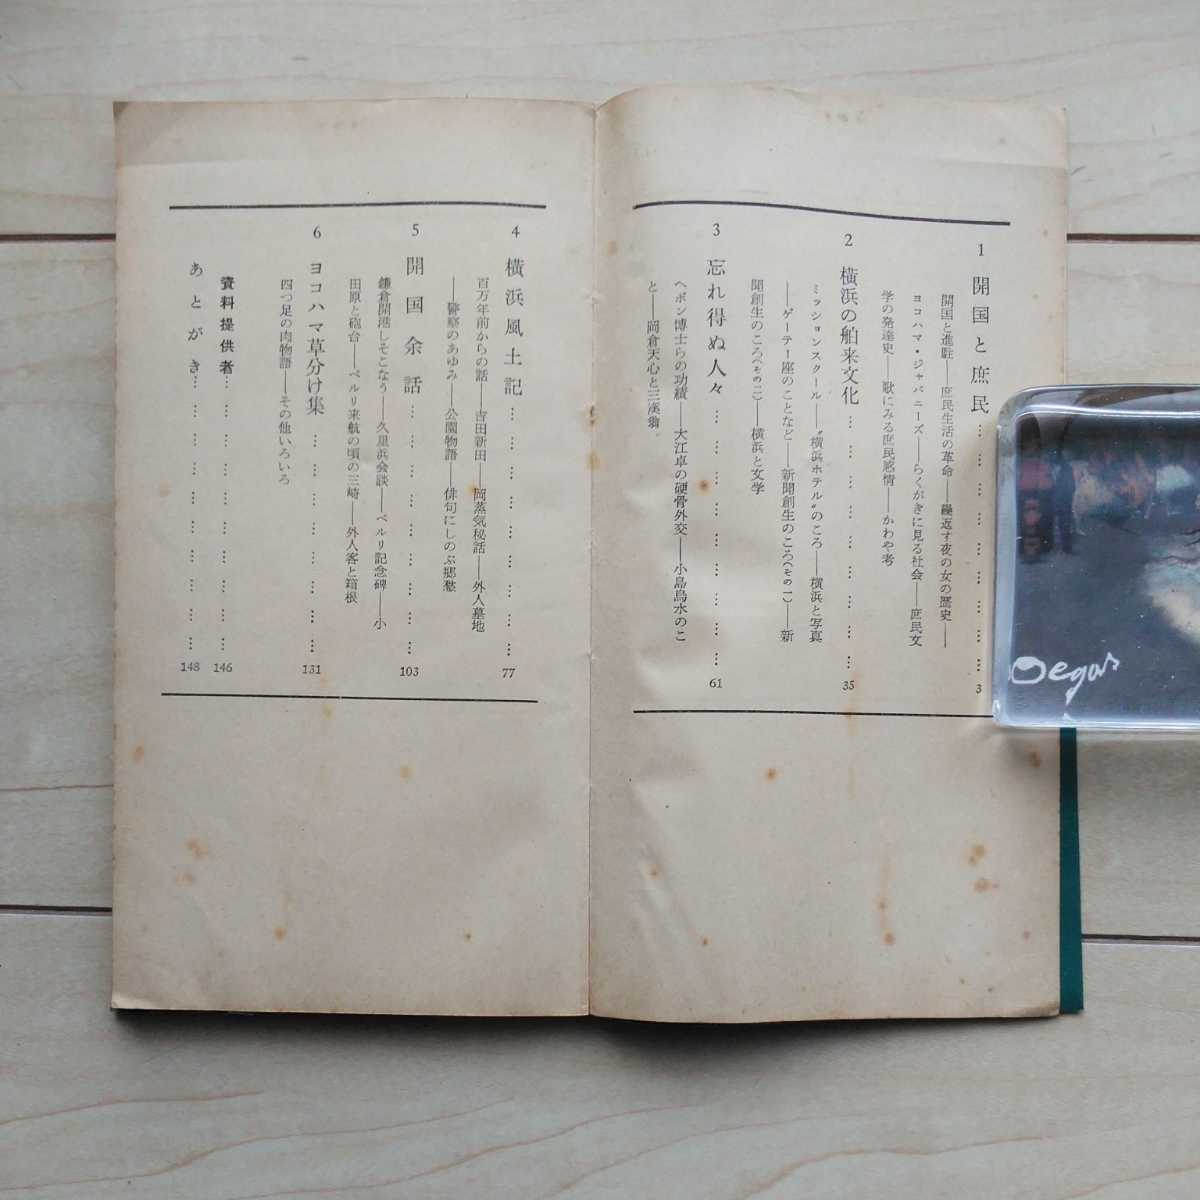 1 開国と庶民………………………3
開国と進駐——庶民生活の革命——繰返す夜の女の歴史——
ヨコハマ・ジャパニーズ——らくがきに見る社会——庶民文
学の発達史——歌にみる庶民感情——かわや考
2 横浜の舶来文化………………………35
ミッションスクール——〝横浜ホテル〟のころ——横浜と写真
——ゲーテー座のことなど——新聞創生のころ(その一)——新
聞創生のころ(その二)——横浜と文学
3 忘れ得ぬ人々………………………61
ヘボン博士らの功績——大江卓の硬骨外交——小島烏水のこ
と——岡倉天心と三溪翁
4 横浜風土記………………………77
百万年前からの話——吉田新田——岡蒸気秘話——外人墓地
——警察のあゆみ——公園物語——俳句にしのぶ郷愁
5 開国余話………………………103
鎌倉開港しそこなう——久里浜会談——ペルリ記念碑——小
田原と砲台——ペルリ来航の頃の三崎——外人客と箱根
6 ヨコハマ草分け集………………………131
四つ足の肉物語——その他いろいろ
資料提供者………………………146
あとがき………………………148
Degas